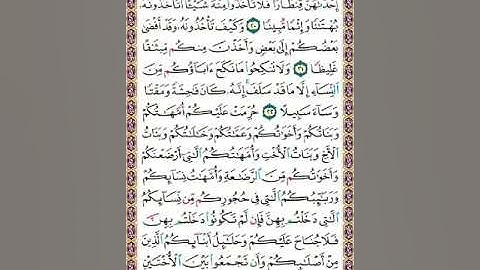 إِحْدَىٰهُنَّ قِنطَارًا فَلَا تَأْخُذُوا۟ مِنْهُ شَيْـًٔا أَتَأْخُذُونَهُۥ
بُهْتَٰنًا وَإِثْمًا مُّبِينًا ٢٠ وَكَيْفَ تَأْخُذُونَهُۥ وَقَدْ أَفْضَىٰ
بَعْضُكُمْ إِلَىٰ بَعْضٍ وَأَخَذْنَ مِنكُم مِّيثَٰقًا
غَلِيظًا ٢١ وَلَا تَنكِحُوا۟ مَا نَكَحَ ءَابَآؤُكُم مِّنَ
ٱلنِّسَآءِ إِلَّا مَا قَدْ سَلَفَ إِنَّهُۥ كَانَ فَٰحِشَةً وَمَقْتًا
وَسَآءَ سَبِيلًا ٢٢ حُرِّمَتْ عَلَيْكُمْ أُمَّهَٰتُكُمْ
وَبَنَاتُكُمْ وَأَخَوَٰتُكُمْ وَعَمَّٰتُكُمْ وَخَٰلَٰتُكُمْ وَبَنَاتُ
ٱلْأَخِ وَبَنَاتُ ٱلْأُخْتِ وَأُمَّهَٰتُكُمُ ٱلَّٰتِىٓ أَرْضَعْنَكُمْ
وَأَخَوَٰتُكُم مِّنَ ٱلرَّضَٰعَةِ وَأُمَّهَٰتُ نِسَآئِكُمْ
وَرَبَٰٓئِبُكُمُ ٱلَّٰتِى فِى حُجُورِكُم مِّن نِّسَآئِكُمُ
ٱلَّٰتِى دَخَلْتُم بِهِنَّ فَإِن لَّمْ تَكُونُوا۟ دَخَلْتُم بِهِنَّ
فَلَا جُنَاحَ عَلَيْكُمْ وَحَلَٰٓئِلُ أَبْنَآئِكُمُ ٱلَّذِينَ
مِنْ أَصْلَٰبِكُمْ وَأَن تَجْمَعُوا۟ بَيْنَ ٱلْأُخْتَيْنِ